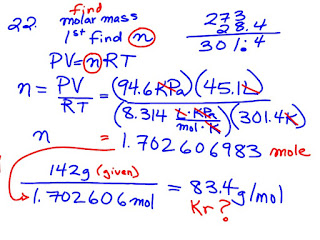 22. find molar mass
1st find n
273
28.4
301.4
PV=nRT
n = PV/RT = (94.6 KPa)(45.1L)/(8.314 L·KPa/mol·K)(301.4K)
n = 1.702606983 mole
142g (given)/1.702606 mol = 83.4 g/mol
Kr?